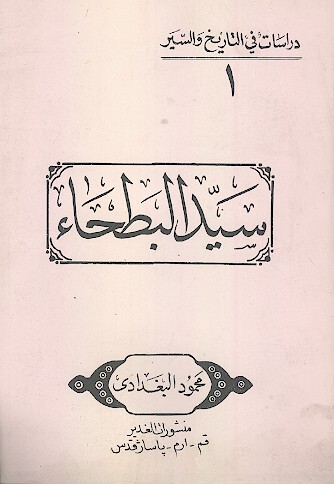 دراسات في التاريخ والسير
١
سيد البطحاء
محمود البغدادي
منشورات الغدير
قم - ارم - پاساژ قدس